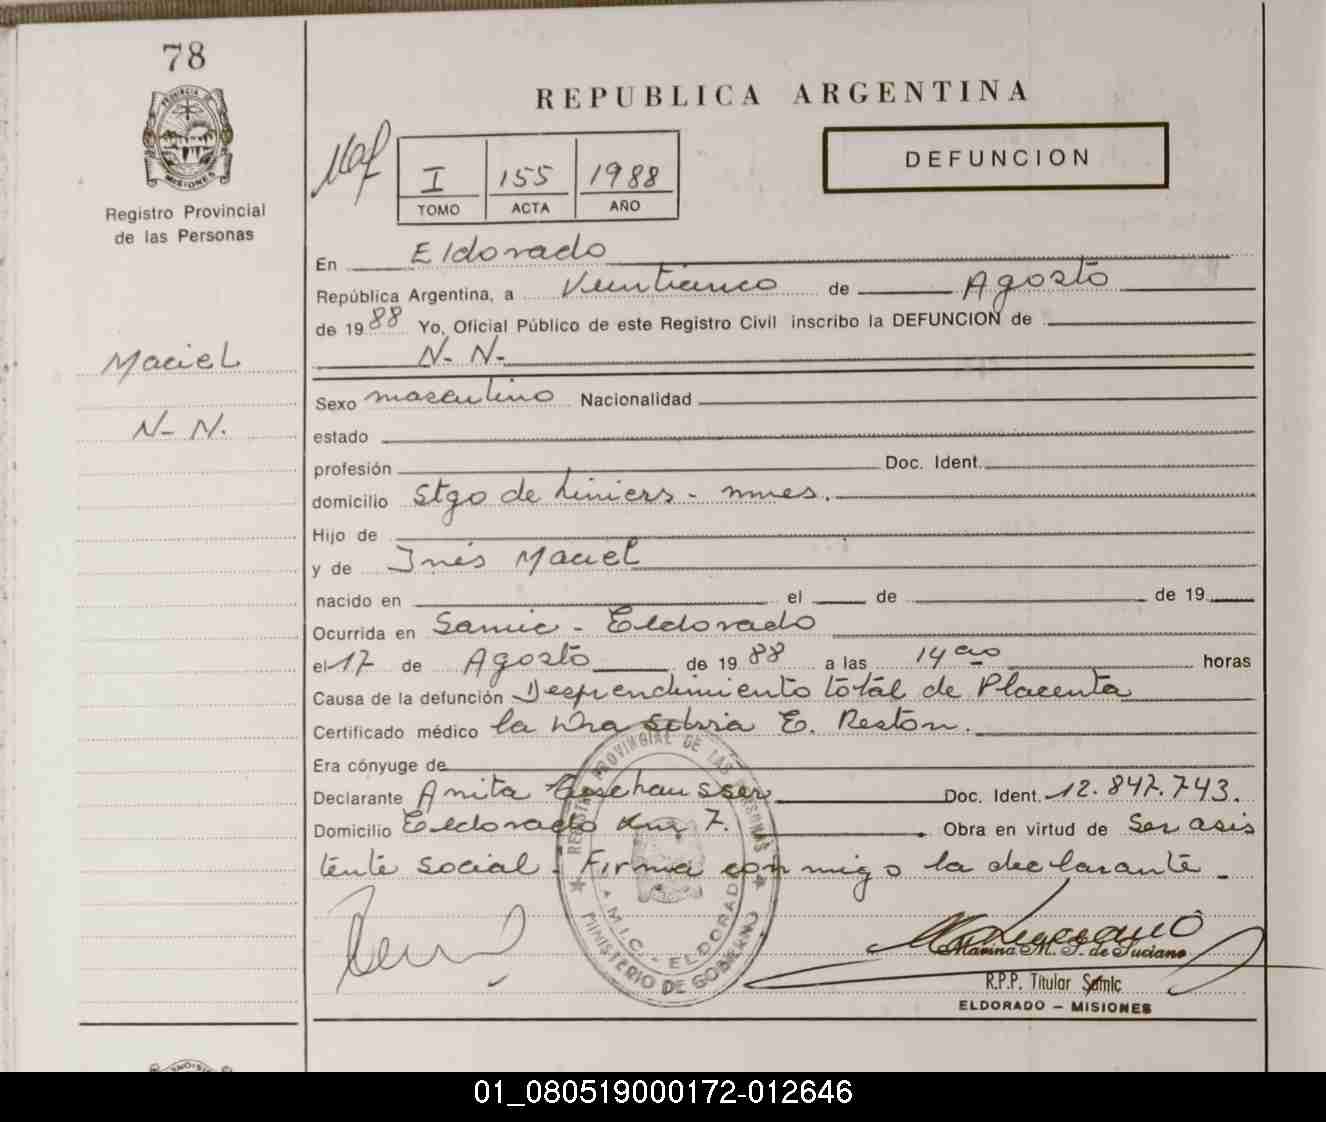 78
PROVINCIA DE
MISIONES
Registro Provincial
de las Personas
Maciel
N- N.
REPUBLICA ARGENTINA
DEFUNCION
I 155 1988
TOMO ACTA AÑO
En Eldorado
República Argentina, a Veinticinco de Agosto
de 1988 Yo, Oficial Público de este Registro Civil inscribo la DEFUNCION de
N- N-
Sexo masculino Nacionalidad
estado
profesión Doc. Ident.
domicilio Stgo de Liniers - mnes.
Hijo de
y de Inés Maciel
nacido en el de de 19
Ocurrida en Samic - Eldorado
el 17 de Agosto de 1988 a las 14 horas
Causa de la defunción Desprendimiento total de Placenta
Certificado médico la Dra Silvia E. Reston.
Era cónyuge de
Declarante Anita Doc. Ident. 12.847.743.
Domicilio Eldorado Km 7. Obra en virtud de Ser asis
tente social. Firma conmigo la declarante -
REGISTRO PROVINCIAL DE LAS PERSONAS
MINISTERIO DE GOBIERNO
A.M.I.C. - ELDORADO
Marina M. J. de Luciano
R.P.P. Titular Samic
ELDORADO - MISIONES
01_080519000172-012646